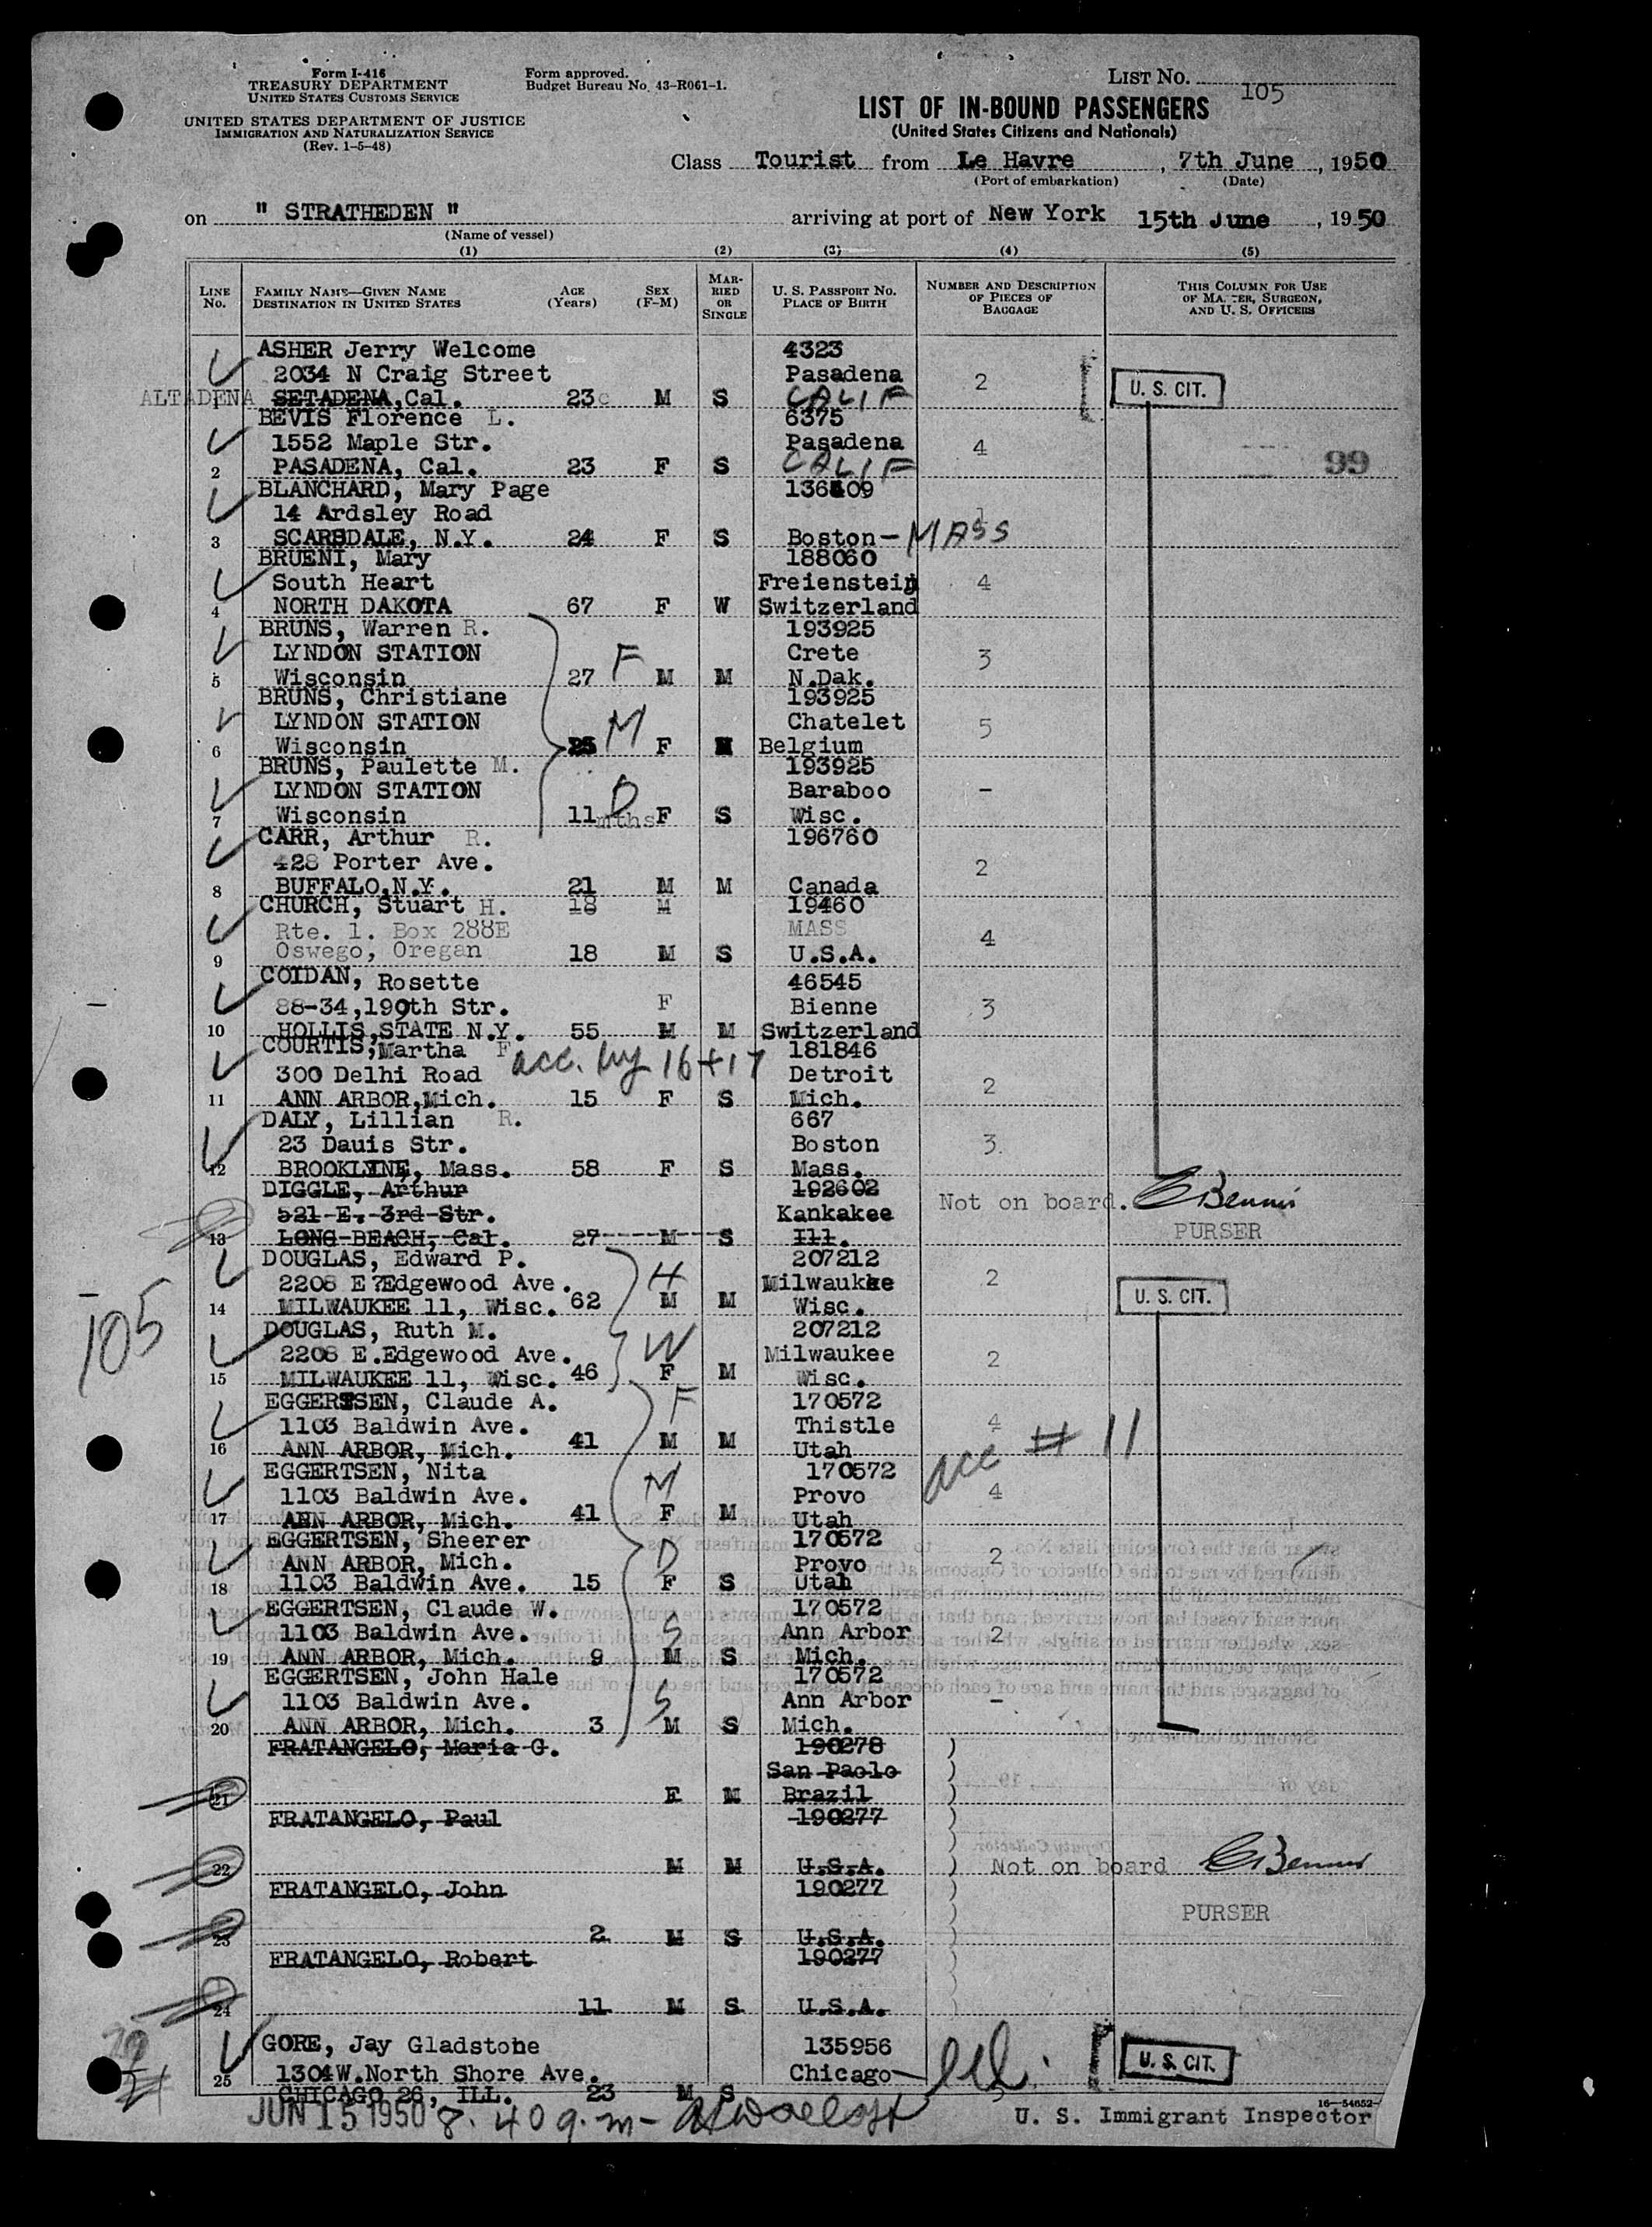 Form I-416
TREASURY DEPARTMENT
UNITED STATES CUSTOMS SERVICE
UNITED STATES DEPARTMENT OF JUSTICE
IMMIGRATION AND NATURALIZATION SERVICE
(Rev. 1-5-48)
Form approved.
Budget Bureau No. 43-R061-1.
LIST NO. 105
LIST OF IN-BOUND PASSENGERS
(United States Citizens and Nationals)
Class Tourist from Le Havre, 7th June, 1950
(Port of embarkation) (Date)
on " STRATHEDEN " arriving at port of New York 15th June, 1950
(Name of vessel)
(1) (2) (3) (4) (5)
LINE No. FAMILY NAME—GIVEN NAME DESTINATION IN UNITED STATES AGE (Years) SEX (F-M) MARRIED OR SINGLE U. S. PASSPORT NO. PLACE OF BIRTH NUMBER AND DESCRIPTION OF PIECES OF BAGGAGE THIS COLUMN FOR USE OF MASTER, SURGEON, AND U. S. OFFICERS
ASHER Jerry Welcome 4323
2034 N Craig Street Pasadena 2 U. S. CIT.
ALTADENA 1 SETADENA, Cal. 23 M S CALIF
BEVIS Florence L. 6375
1552 Maple Str. Pasadena 4
2 PASADENA, Cal. 23 F S CALIF 99
BLANCHARD, Mary Page 136809
14 Ardsley Road 1
3 SCARSDALE, N.Y. 24 F S Boston - MASS
BRUENI, Mary 188060
South Heart Freienstein 4
4 NORTH DAKOTA 67 F W Switzerland
BRUNS, Warren R. 193925
LYNDON STATION F Crete 3
5 Wisconsin 27 M M N.Dak.
BRUNS, Christiane 193925
LYNDON STATION M Chatelet 5
6 Wisconsin 25 F M Belgium
BRUNS, Paulette M. 193925
LYNDON STATION D Baraboo -
7 Wisconsin 11 mths F S Wisc.
CARR, Arthur R. 196760
428 Porter Ave. 2
8 BUFFALO, N.Y. 21 M M Canada
CHURCH, Stuart H. 18 M 19460
Rte. 1. Box 288E MASS 4
9 Oswego, Oregan 18 M S U.S.A.
COIDAN, Rosette 46545
88-34, 199th Str. F Bienne 3
10 HOLLIS, STATE N.Y. 55 M M Switzerland
COURTIS, Martha F acc. by 16+17 181846
300 Delhi Road Detroit 2
11 ANN ARBOR, Mich. 15 F S Mich.
DALY, Lillian R. 667
23 Dauis Str. Boston 3.
12 BROOKLINE, Mass. 58 F S Mass.
DIGGLE, Arthur 192602 Not on board. C Bennis
521 E. 3rd Str. Kankakee PURSER
13 LONG BEACH, Cal. 27 M S Ill.
DOUGLAS, Edward P. 207212
2208 E?Edgewood Ave. H Milwaukee 2 U. S. CIT.
14 MILWAUKEE 11, Wisc. 62 M M Wisc.
105
DOUGLAS, Ruth M. 207212
2208 E.Edgewood Ave. W Milwaukee 2
15 MILWAUKEE 11, Wisc. 46 F M Wisc.
EGGERTSEN, Claude A. F 170572
1103 Baldwin Ave. Thistle 4
16 ANN ARBOR, Mich. 41 M M Utah acc # 11
EGGERTSEN, Nita 170572
1103 Baldwin Ave. M Provo 4
17 ANN ARBOR, Mich. 41 F M Utah
EGGERTSEN, Sheerer 170572
ANN ARBOR, Mich. D Provo 2
18 1103 Baldwin Ave. 15 F S Utah
EGGERTSEN, Claude W. 170572
1103 Baldwin Ave. S Ann Arbor 2
19 ANN ARBOR, Mich. 9 M S Mich.
EGGERTSEN, John Hale 170572
1103 Baldwin Ave. S Ann Arbor -
20 ANN ARBOR, Mich. 3 M S Mich.
FRATANGELO, Maria G. 190278
San Paolo
21 F M Brazil
FRATANGELO, Paul 190277
22 M M U.S.A. Not on board C Bennis
FRATANGELO, John 190277
PURSER
23 2 M S U.S.A.
FRATANGELO, Robert 190277
24 11 M S U.S.A.
GORE, Jay Gladstone 135956
25 1304 W. North Shore Ave. Chicago - Ill. U. S. CIT.
CHICAGO 26, ILL. 23 M S
JUN 15 1950 8.40 a.m -
16—54652-
U. S. Immigrant Inspector